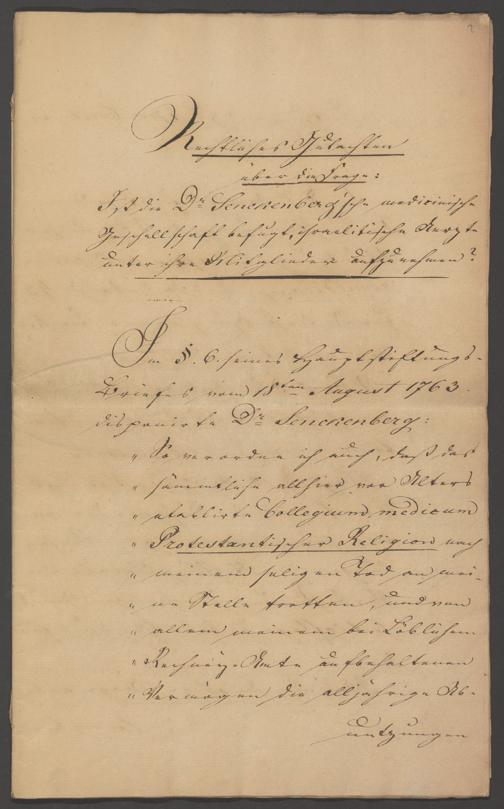 2
Rechtliches Gutachten
über die Frage:
Ist die Dr Senckenberg'sche medicinische
Gesellschaft befugt, israelitische Aerzte
unter ihre Mitglieder aufzunehmen?
Im §. 6. seines Hauptstiftungs-
Briefes vom 18ten August 1763.
disponirte Dr Senckenberg:
„ So verordne ich auch, daß das
„ sämmtliche allhier vor Alters
„ etablirte Collegium medicum
„ Protestantischer Religion nach
„ meinem seligen Tod an mei-
„ ne Stelle tretten, und von
„ allem meinem bei Löblichem
„ Rechney-Amte aufbehaltenen
„ Vermögen die alljährige Ab-
nutzungen